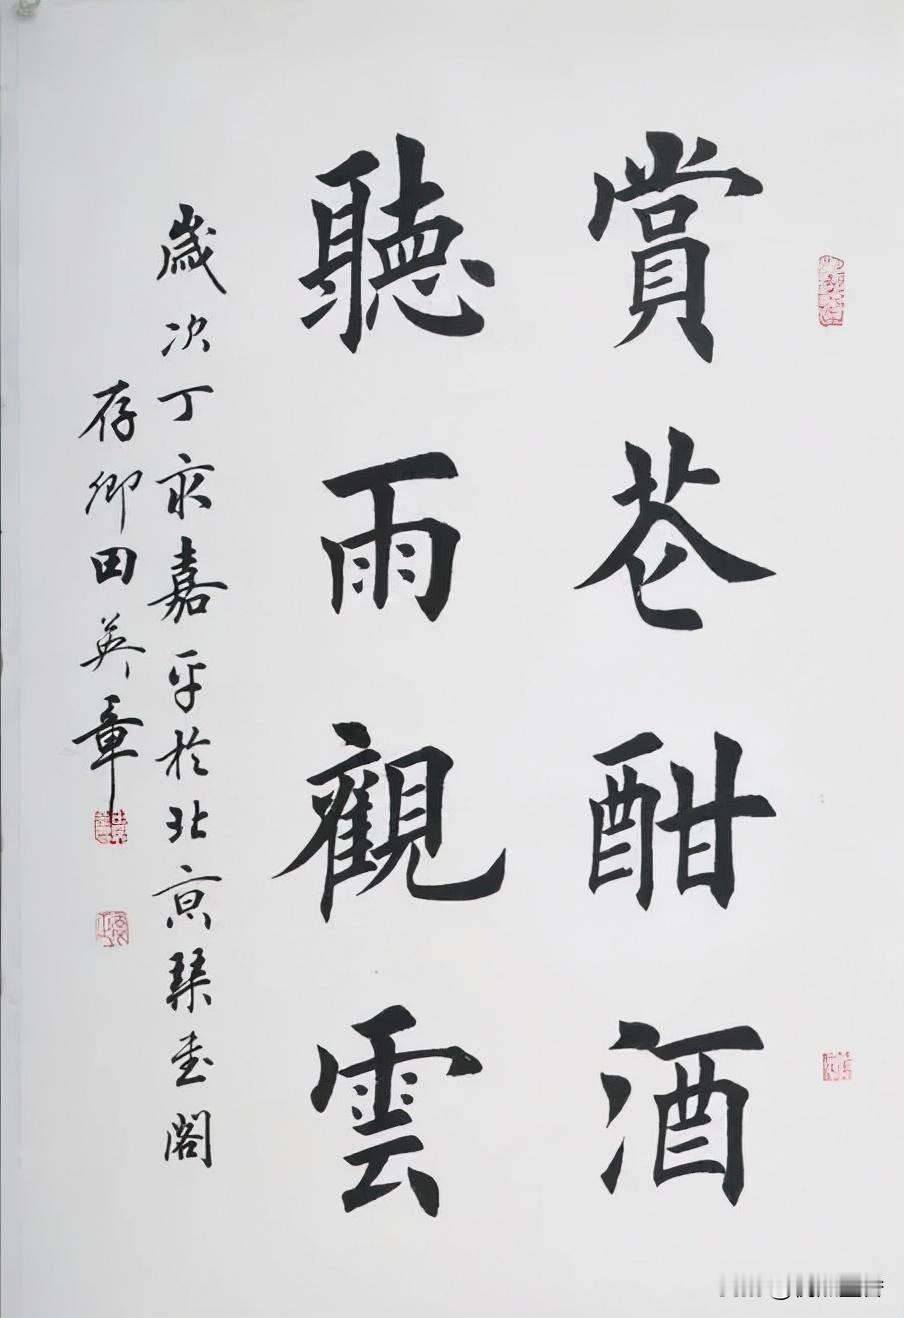 賞花酣酒
聽雨觀雲
歲次丁亥嘉平於北京琹書閣
存卿田英章